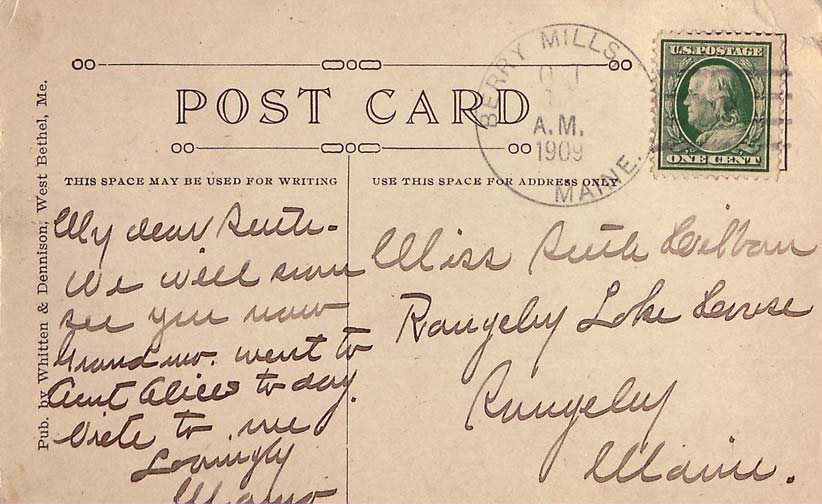 BERRY MILLS
A.M.
1909
MAINE.
U.S. POSTAGE
ONE CENT
POST CARD
THIS SPACE MAY BE USED FOR WRITING
USE THIS SPACE FOR ADDRESS ONLY
Pub. by Whitten & Dennison, West Bethel, Me.
My dear Ruth-
We will soon
see you now
Grand mo. went to
Aunt Alices to day.
Write to me
Lovingly
Miss Ruth
Rangeley Lake House
Rangeley
Maine.